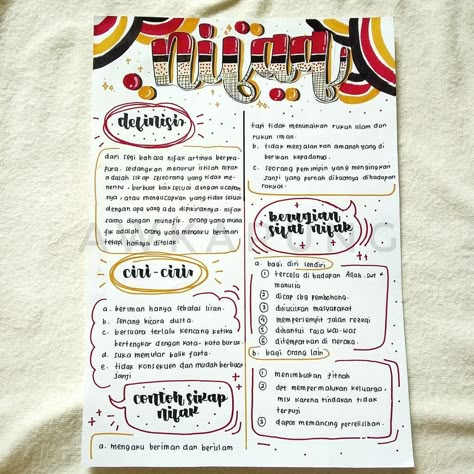 nifaq
definisi
dari segi bahasa nifak artinya berpura-
pura. sedangkan menurut istilah nifak
adalah sikap seseorang yang tidak me-
nentu, berbuat baik sesuai dengan ucapan
nya, atau mengucapkan yang tidak sesuai
dengan apa yang ada dipikirannya. nifak
sama dengan munafik. orang yang muna
fik adalah orang yang mengaku beriman
tetapi hatinya ditolak.
ciri-ciri
a. beriman hanya sebatas lisan.
b. senang bicara dusta.
c. bersuara terlalu kencang ketika
bertengkar dengan kata-kata buruk.
d. suka memutar balik fakta.
e. tidak konsekuen dan mudah berbuat
janji
contoh sikap
nifak
a. mengaku beriman dan berislam
tapi tidak menunaikan rukun islam dan
rukun iman.
b. tidak menjalankan amanah yang di
berikan kepadanya.
c. seorang pemimpin yang mengingkari
janji yang pernah dibuatnya dihadapan
rakyat.
kerugian
sifat nifak
a. bagi diri sendiri
1 tercela di hadapan Allah swt &
manusia
2 dicap sbg pembohong
3 dikucilkan masyarakat
4 mempersempit jalan rezeqi
5 dihantui rasa was-was
6 ditempatkan di neraka.
b. bagi orang lain
1 menimbulkan fitnah
2 dpt mempermalukan keluarga,
krn tindakan tidak
terpuji
3 dapat memancing perselisihan.